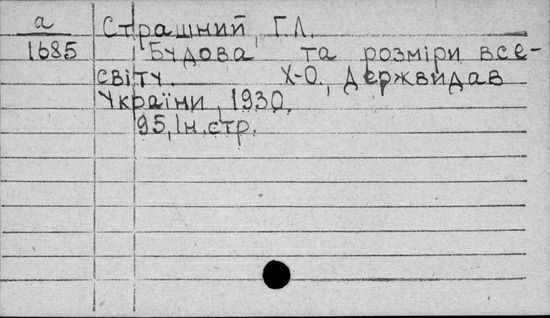 а
1685
Страшний, Г.Л.
Будова та розміри все-
світу. Х-О., Держвидав
України, 1930.
95, Ін.стр.